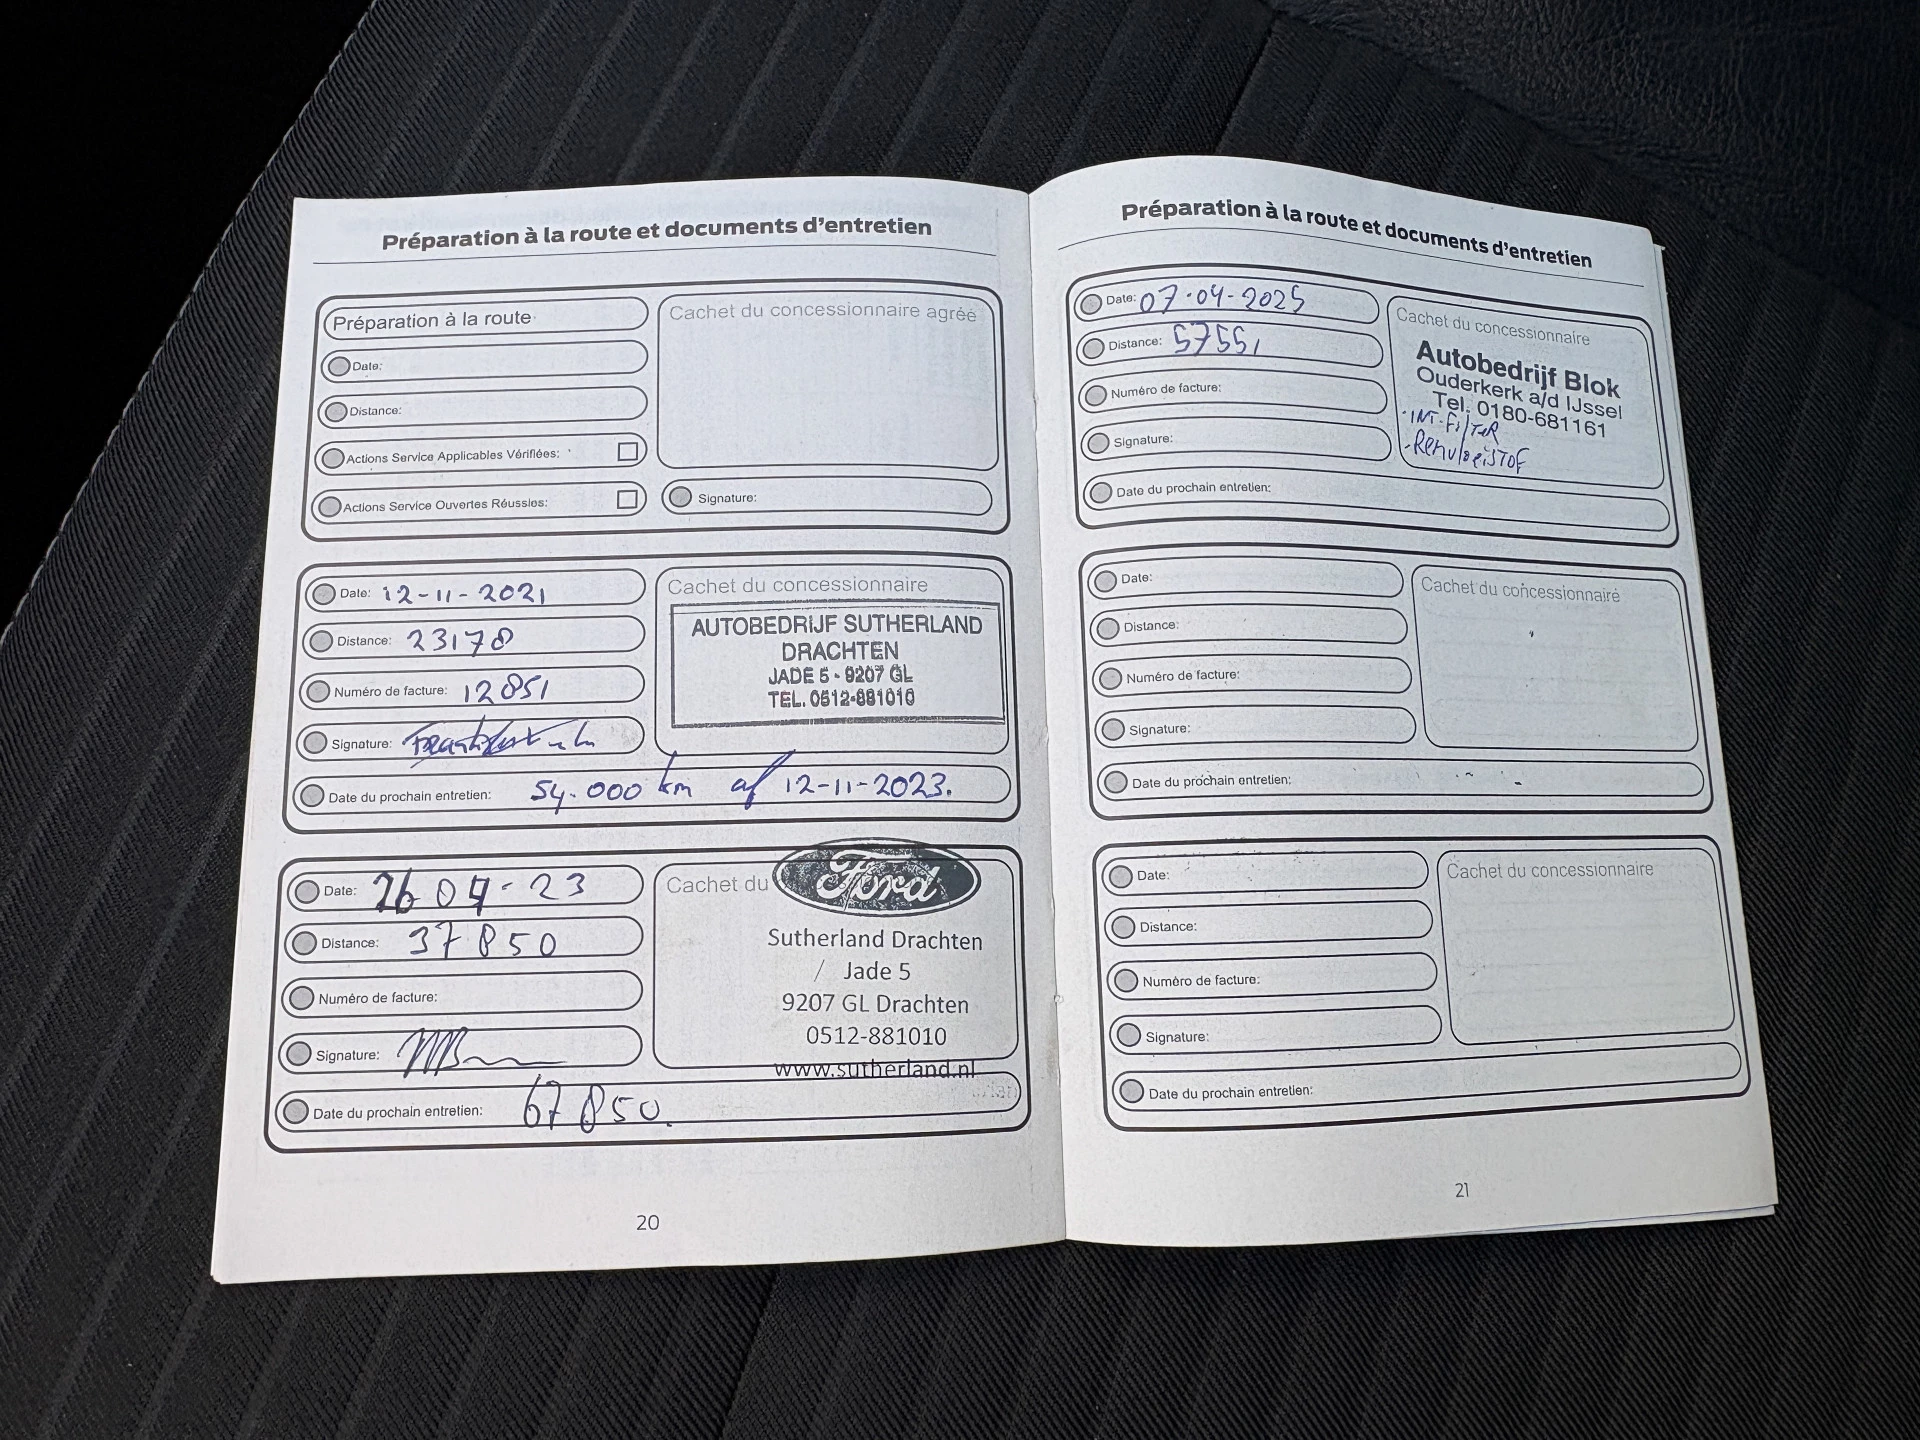 Préparation à la route et documents d'entretien
Préparation à la route
Date:
Distance:
Actions Service Applicables Vérifiées:
Actions Service Ouvertes Réussies:
Cachet du concessionnaire agréé
Signature:
Date: 12-11-2021
Distance: 23178
Numéro de facture: 12851
Signature:
Date du prochain entretien: 54.000 km of 12-11-2023.
Cachet du concessionnaire
AUTOBEDRIJF SUTHERLAND
DRACHTEN
JADE 5 - 9207 GL
TEL. 0512-881010
Date: 26 04-23
Distance: 37850
Numéro de facture:
Signature:
Date du prochain entretien: 67850.
Cachet du
Ford
Sutherland Drachten
/ Jade 5
9207 GL Drachten
0512-881010
www.sutherland.nl
20
Préparation à la route et documents d'entretien
Date: 07-04-2025
Distance: 57551
Numéro de facture:
Signature:
Date du prochain entretien:
Cachet du concessionnaire
Autobedrijf Blok
Ouderkerk a/d IJssel
Tel. 0180-681161
-INT-FilTER
-RemvloeiSTOF
Date:
Distance:
Numéro de facture:
Signature:
Date du prochain entretien:
Cachet du concessionnaire
Date:
Distance:
Numéro de facture:
Signature:
Date du prochain entretien:
Cachet du concessionnaire
21